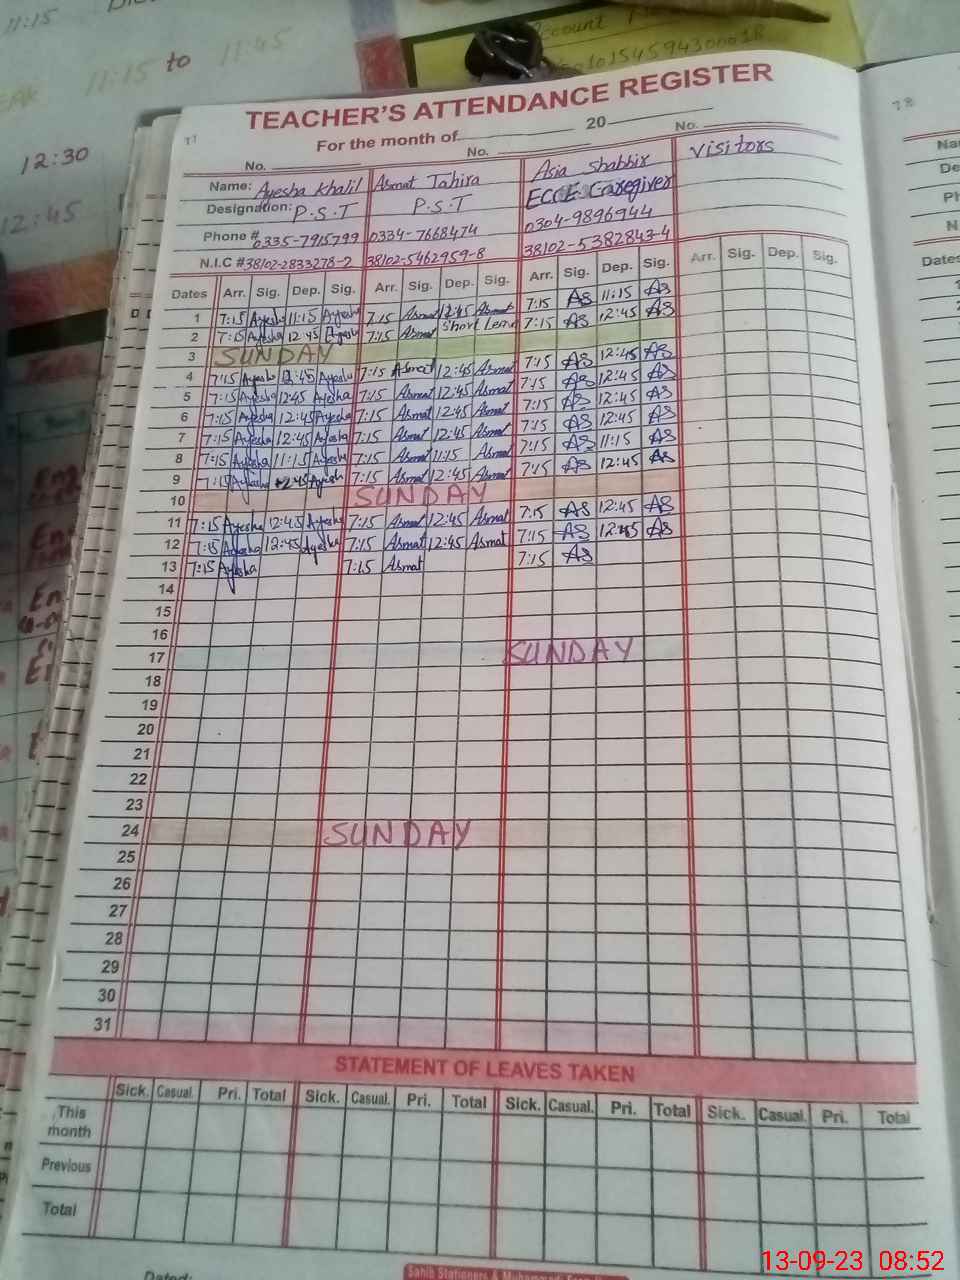 11:15
11:15 to 11:45
12:30
12:45
TEACHER'S ATTENDANCE REGISTER
77
For the month of 20
No. No. No.
Name: Ayesha Khalil Asmat Tahira Asia Shabbir visitors
Designation: P.S.T P.S.T ECCE Caregiver
Phone # 0335-7915799 0334-7668474 0304-9896944
N.I.C # 38102-2833278-2 38102-5462959-8 38102-5382843-4
Dates Arr. Sig. Dep. Sig. Arr. Sig. Dep. Sig. Arr. Sig. Dep. Sig. Arr. Sig. Dep. Sig.
1 7:15 Ayesha 11:15 Ayesha 7:15 Asmat 12:45 Asmat 7:15 AS 11:15 AS
2 7:15 Ayesha 12:45 Ayesha 7:15 Asmat Short Leave 7:15 AS 12:45 AS
3 SUNDAY
4 7:15 Ayesha 12:45 Ayesha 7:15 Asmat 12:45 Asmat 7:15 AS 12:45 AS
5 7:15 Ayesha 12:45 Ayesha 7:15 Asmat 12:45 Asmat 7:15 AS 12:45 AS
6 7:15 Ayesha 12:45 Ayesha 7:15 Asmat 12:45 Asmat 7:15 AS 12:45 AS
7 7:15 Ayesha 12:45 Ayesha 7:15 Asmat 12:45 Asmat 7:15 AS 12:45 AS
8 7:15 Ayesha 11:15 Ayesha 7:15 Asmat 11:15 Asmat 7:15 AS 11:15 AS
9 7:15 Ayesha 12:45 Ayesha 7:15 Asmat 12:45 Asmat 7:15 AS 12:45 AS
10 SUNDAY
11 7:15 Ayesha 12:45 Ayesha 7:15 Asmat 12:45 Asmat 7:15 AS 12:45 AS
12 7:15 Ayesha 12:45 Ayesha 7:15 Asmat 12:45 Asmat 7:15 AS 12:45 AS
13 7:15 Ayesha 7:15 Asmat 7:15 AS
14
15
16
17 SUNDAY
18
19
20
21
22
23
24 SUNDAY
25
26
27
28
29
30
31
STATEMENT OF LEAVES TAKEN
Sick. Casual. Pri. Total Sick. Casual. Pri. Total Sick. Casual. Pri. Total Sick. Casual. Pri. Total
This
month
Previous
Total
Dated:
78
Dates
13-09-23 08:52